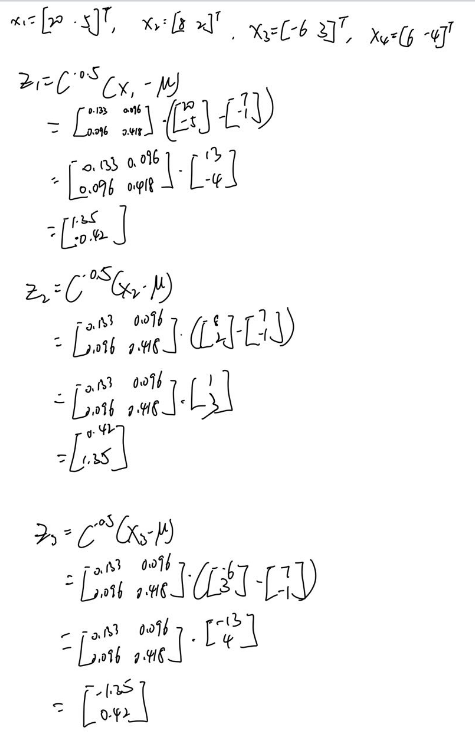 x₁=[20 -5]ᵀ, x₂=[8 2]ᵀ, x₃=[-6 3]ᵀ, x₄=[6 -4]ᵀ
z₁=C^-0.5 (x₁-μ)
= [0.133 0.096; 0.096 0.418]·([20; -5]-[7; -1])
= [0.133 0.096; 0.096 0.418]·[13; -4]
= [1.35; -0.42]
z₂=C^-0.5(x₂-μ)
= [0.133 0.096; 0.096 0.418]·([8; 2]-[7; -1])
= [0.133 0.096; 0.096 0.418]·[1; 3]
= [0.42; 1.35]
z₃=C^-0.5(x₃-μ)
= [0.133 0.096; 0.096 0.418]·([-6; 3]-[7; -1])
= [0.133 0.096; 0.096 0.418]·[-13; 4]
= [-1.35; 0.42]